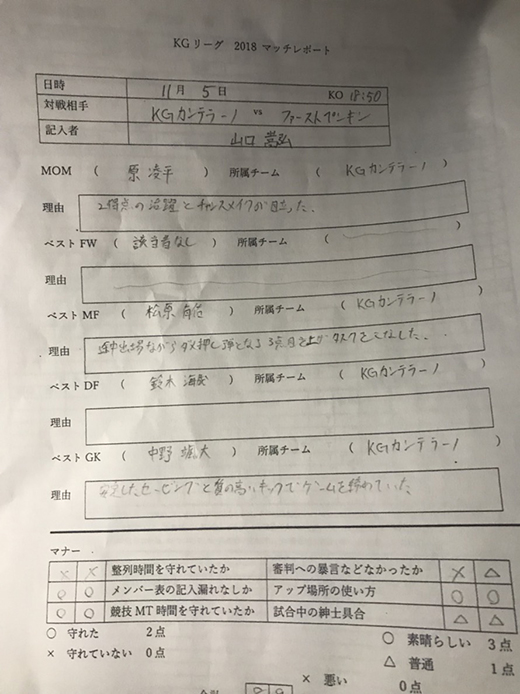 KG リーグ 2018 マッチレポート
日時 11月 5日 KO 18:50
対戦相手 KGカンテラーノ vs ファーストプンキン
記入者 山口
MOM ( 原 凌平 ) 所属チーム ( KGカンテラーノ )
理由 2得点の活躍とチャンスメイクが目立った.
ベスト FW ( 該当者なし ) 所属チーム ( )
理由
ベスト MF ( 松原 ) 所属チーム ( KGカンテラーノ )
理由 途中出場ながらダメ押し弾となる3点目を上げタスクをこなした.
ベスト DF ( 鈴木 ) 所属チーム ( KGカンテラーノ )
理由
ベスト GK ( 中野 颯大 ) 所属チーム ( KGカンテラーノ )
理由 安定したセービングと質の高いキックでゲームを締めていた
マナー
× × 整列時間を守れていたか 審判への暴言などなかったか × △
○ ○ メンバー表の記入漏れなしか アップ場所の使い方 ○ ○
○ ○ 競技 MT 時間を守れていたか 試合中の紳士具合 △ △
○ 守れた 2点 ○ 素晴らしい 3点
× 守れていない 0点 △ 普通 1点
× 悪い 0点